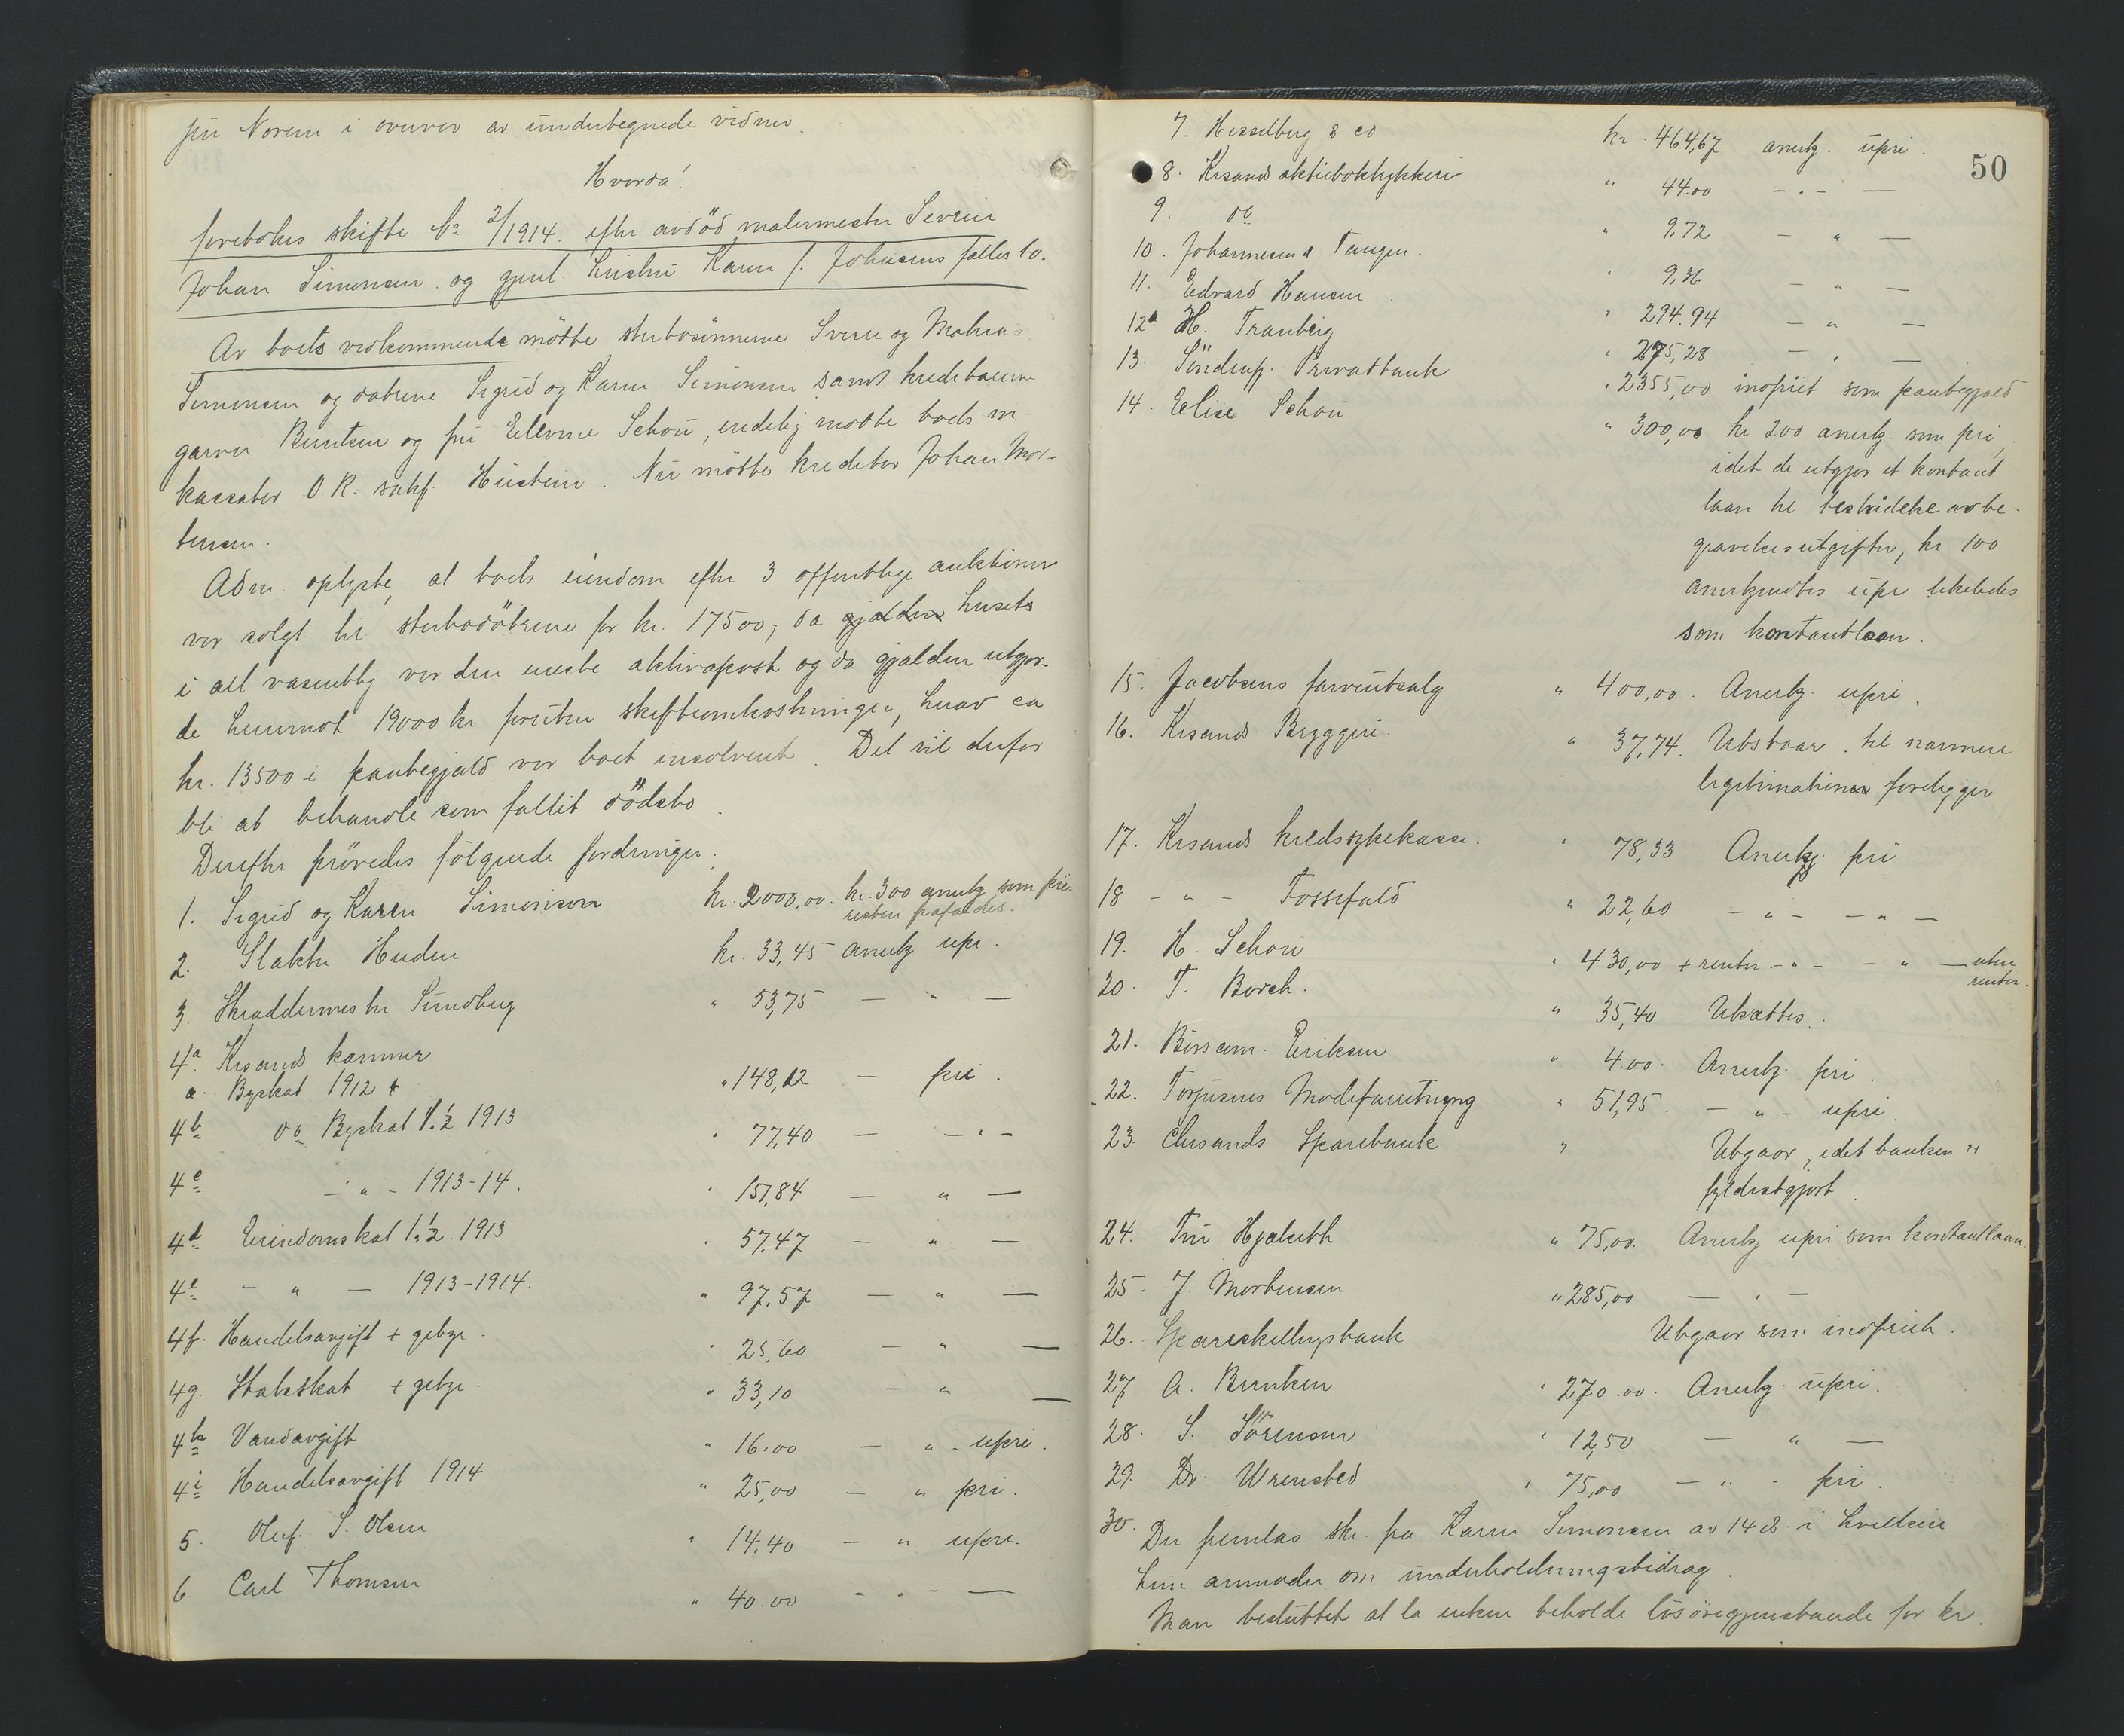 fru Norem i overvær av undertegnede vidner.
Hvorda!
foretokes skifte No 2/1914. efter avdöd malermester Severin
Johan Simonsen og gjenl. hustru Karen f. Johnsens fælles bo.
Av boets vedkommende mötte sterbosönnerne Sverre og Mathias
Simonsen og døtrene Sigrid og Karen Simonsen samt kreditorerne
garver Bentsen og fru Schou, endelig mötte boets in-
kassator O.R. sakf. Heistein. Nu mötte kreditor Johan Mor-
tensen.
Adm. oplyste, at boets eiendom efter 3 offentlige auktioner
var solgt til sterbodötrene for kr. 17500,- da gjælden husets
i alt væsentlig var den eneste aktivapost og da gjælden utgjor-
de henimot 19000 kr foruten skifteomkostninger, hvav ca
kr. 13500 i pantegjæld var boet insolvent. Det vil derfor
bli at behandle som fallit dödsbo.
Derefter prövedes fölgende fordringer.
1. Sigrid og Karen Simonsen kr. 2000,00. kr. 300 anerkj. som pri.
resten frafaldes.
2. Slakter Heuden kr. 33,45 anerkj. upr.
3. Skræddermester Sundberg " 53,75 — " —
4a. Krsands kæmner
a. Byskat 1912 " 148,12 — pri.
4b do Byskat 1.½ 1913 " 77,40 — - " -
4c - " - 1913-14. " 151,84 — " —
4d Eiendomskat 1.½. 1913 " 57,47 — " —
4e - " — 1913-1914. " 97,57 — " —
4f. Handelsavgift + gebyr. " 25,60 — " —
4g. Statsskat + gebyr. " 33,10 — " —
4h Vandavgift " 16.00 — " - upri.
4i Handelsavgift 1914 " 25,00 — " pri.
5. Oluf S. Olsen " 14,40 — " upri.
6 Carl Thomsen " 40.00 - " - —
50
7. Hesselberg & co kr. 464,67 anerkj. upri.
8. Krsands aktieboktrykkeri " 44.00 - " - —
9. do " 9,72 — " —
10. Johannesen & Tangen. " 9,36 — " —
11. Edvard Hansen. " 294.94 — " —
12a H. Tranberg " 275,28 — " —
13. Söndenf. Privatbank " 2355,00 indfriet som pantegjæld
14. Elise Schou " 300,00 kr 200 anerkj. som pri,
idet de utgjør et kontant
laan til bestridelse av be-
gravelsesutgifter, kr. 100
anerkjendtes upr. likeledes
som kontantlaan.
15. Jacobsens farveutsalg " 400,00. Anerkj. upri.
16. Krsands Bryggeri. " 37,74. Utstaar til nærmere
legitimation foreligger
17. Krsands kredssykekasse. " 78,33 Anerkj. pri
18 - " - Fossefald " 22,60 - " - - " —
19. H. Schou " 430,00 + renter - " - - " — uten
renter.
20. T. Borch. " 35,40 Utsættes.
21. Eriksen " 4.00. Anerkj. pri.
22. Torjusens Modeforretning " 51,95. — " - upri.
23. Chrsands Sparebank " Utgaar, idet banken er
fyldestgjort.
24. Fru Hjaluth " 75,00. Anerkj upri som kontantlaan.
25. J. Mortensen " 285,00 — " —
26. Spareskillingsbank Utgaar som indfriet.
27 A. Bentsen " 270.00. Anerkj. upri.
28. S. Sörensen " 12,50 — " —
29. Dr. Wrensted " 75,00 — " - pri.
30. Der fremlas skr. fra Karen Simonsen av 14 ds. i hvilken
hun anmoder om underholdningsbidrag.
Man besluttet at la enken beholde lösöregjenstande for kr.